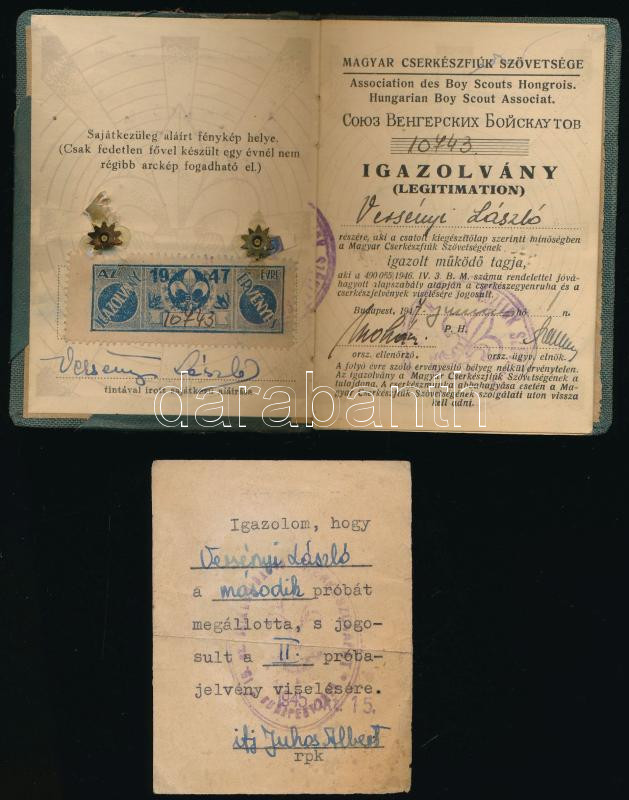 Sajátkezüleg aláírt fénykép helye.
(Csak fedetlen fővel készült egy évnél nem
régibb arckép fogadható el.)
AZ 1947 ÉVRE
IGAZOLVÁNY ÉRVÉNYES
10743
Versényi László
tintával írott sajátkezű aláírása
MAGYAR CSERKÉSZFIÚK SZÖVETSÉGE
Association des Boy Scouts Hongrois.
Hungarian Boy Scout Associat.
Союз Венгерских Бойскаутов
10743
IGAZOLVÁNY
(LEGITIMATION)
Versényi László
részére, aki a csatolt kiegészítőlap szerinti minőségben
a Magyar Cserkészfiúk Szövetségének
igazolt működő tagja,
aki a 490055/1946. IV. 3. B. M. számu rendelettel jóvá-
hagyott alapszabály alapján a cserkészegyenruha és a
cserkészjelvények viselésére jogosult.
Budapest, 1947 hó n.
P. H.
orsz. ellenőrző. orsz. ügyv. elnök.
A folyó évre szóló érvényesitő bélyeg nélkül érvénytelen.
Az igazolvány a Magyar Cserkészfiúk Szövetségének a
tulajdona. A cserkészmunka abbahagyása esetén a Ma-
gyar Cserkészfiúk Szövetségének szolgálati uton vissza
kell adni.
darabanth
Igazolom, hogy
Versényi László
a második próbát
megállotta, s jogo-
sult a II. próba-
jelvény viselésére.
1945
15.
ifj Juhos Albert
rpk